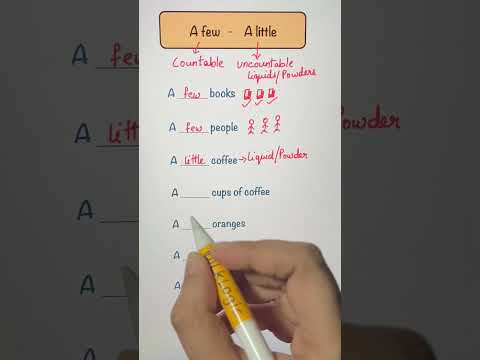 A few - A little
Countable uncountable
Liquids/Powders
A few books
A few people
A little coffee → Liquid/Powder
A ______ cups of coffee
A ______ oranges
A
A